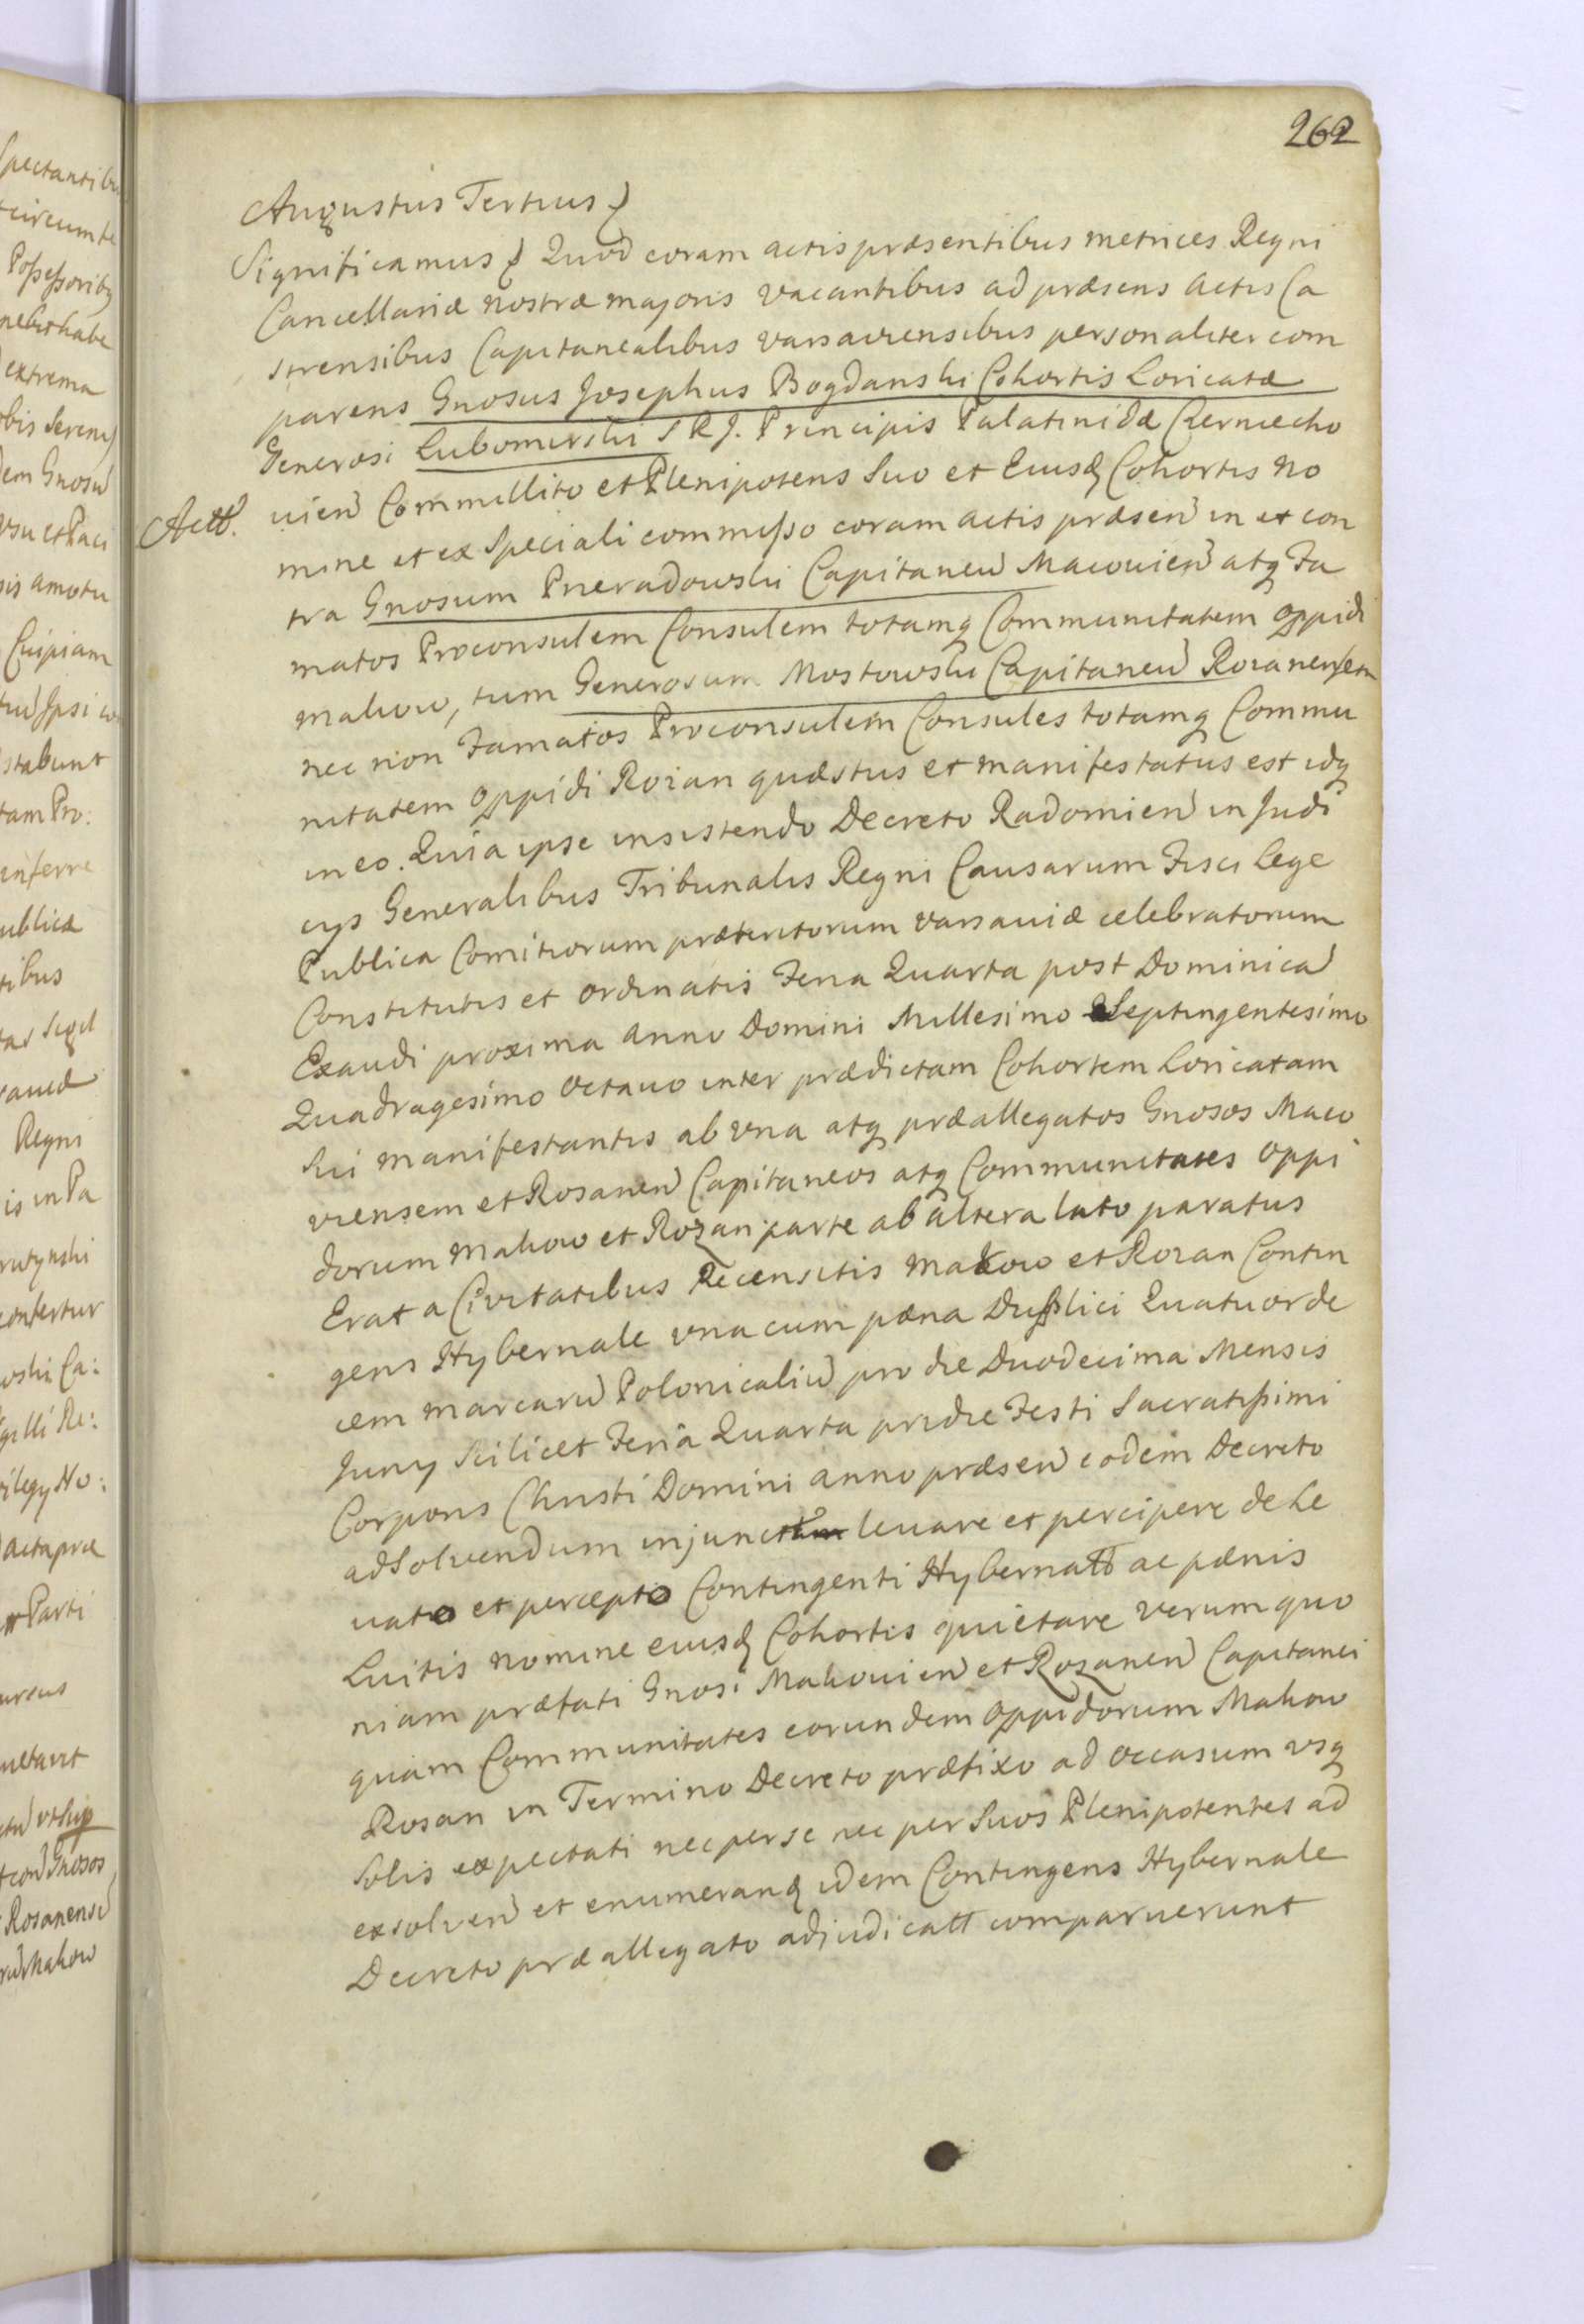 262
Augustus Tertius
Significamus Quod coram actis præsentibus metrices Regni
Cancellariæ nostræ majoris vacantibus ad præsens actis Ca
strensibus Capitanealibus varsaviensibus personaliter com
parens Gnosus Josephus Bogdanski Cohortis Loricatæ
Generosi Lubomirski S R J. Principis Palatinidæ Czerniecho
Actt.
vien Commillito et Plenipotens Suo et Eiusq Cohortis no
mine et ex speciali commisso coram actis præsen in et con
tra Gnosum Pneradowski Capitaneu Macovien atq Fa
matos Proconsulem Consulem totamq Communitatem oppidi
makow, tum Generosum Mostowski Capitaneu Rozanensem
nec non Famatos Proconsulem Consules totamq Commu
nitatem oppidi Rozan quæstus et manifestatus est idq
in eo. Quia ipse insistendo Decreto Radomien in Judi
cys Generalibus Tribunalis Regni Causarum Fisci Lege
Publica Comitiorum præteritorum varsaviæ celebratorum
Constitutis et ordinatis Feria Quarta post Dominica
Exaudi proxima anno Domini Millesimo Septingentesimo
Quadragesimo octavo inter prædictam Cohortem Loricatam
Sui manifestantis ab vna atq præallegatos Gnosos Maco
viensem et Rosanen Capitaneos atq Communitates oppi
dorum makow et Rozan parte ab altera lato paratus
Erat a Civitatibus Recensitis makow et Rozan Contin
gens Hybernale vna cum pæna Duplici Quatuorde
cem marcaru Polonicaliu pro die Duodecima Mensis
Juny Scilicet Feria Quarta pridie Festi Sacratissimi
Corporis Christi Domini anno præsen eodem Decreto
adsolvendum injuncto levare et percipere de Le
vato et percepto Contingenti Hybernatt ac pænis
Luitis nomine eiusq Cohortis quietare verum quo
niam præfati Gnosi Makovien et Rozanen Capitanei
quam Communitates eorundem oppidorum Makow
Rosan in Termino Decreto præfixo ad occasum vsq
Solis expectati nec per se nec per Suos Plenipotentes ad
exsolven et enumerand idem Contingens Hybernale
Decreto præallegato adjudicatt comparuerunt